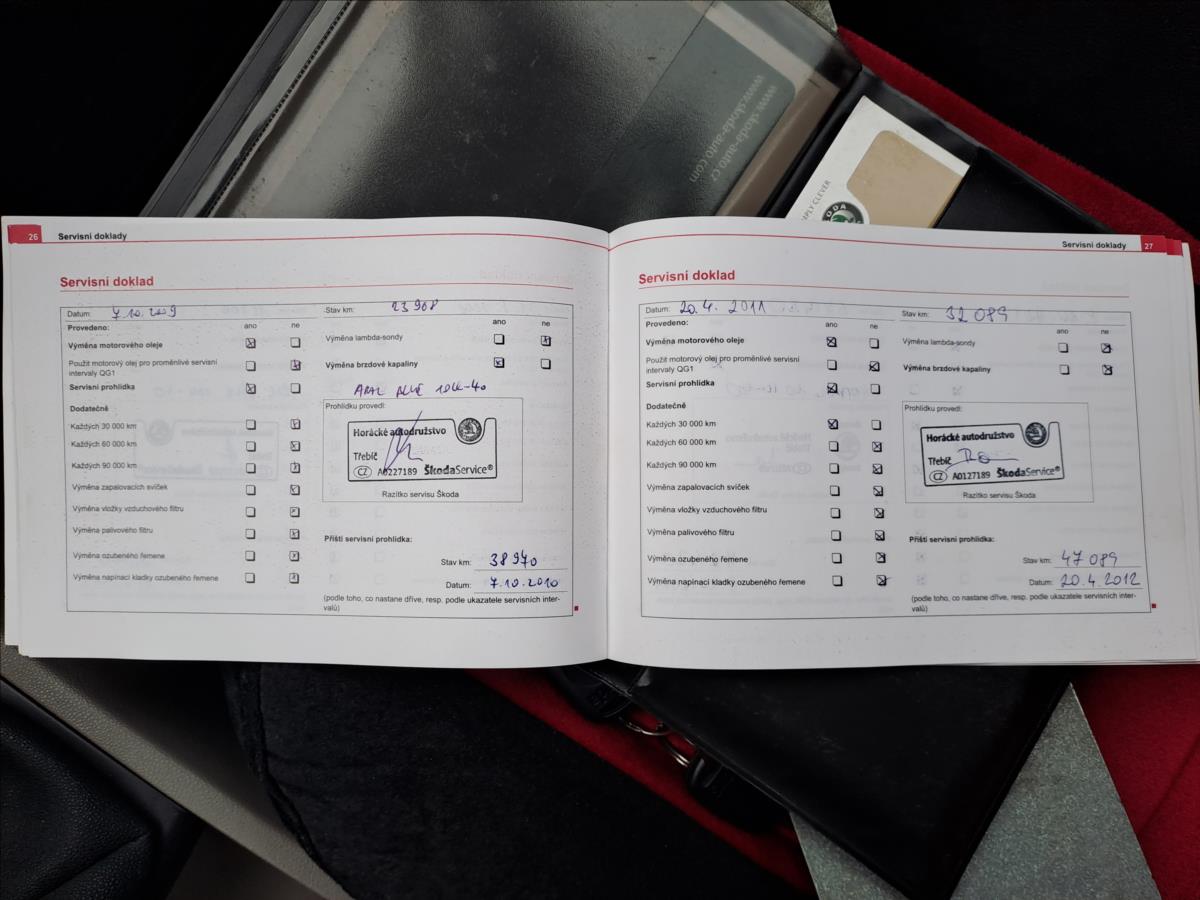 www.skoda-auto.cz
www.skoda-auto.com
SIMPLY CLEVER
26 Servisní doklady
Servisní doklad
Datum: 7.10.2009 Stav km: 23 908
Provedeno: ano ne ano ne
Výměna motorového oleje
Výměna lambda-sondy
Použit motorový olej pro proměnlivé servisní intervaly QG1
Výměna brzdové kapaliny
Servisní prohlídka
Dodatečně
Prohlídku provedl:
Každých 30 000 km
Každých 60 000 km
Každých 90 000 km
Horácké autodružstvo
Třebíč
CZ A0227189 ŠkodaService®
Razítko servisu Škoda
Výměna zapalovacích svíček
Výměna vložky vzduchového filtru
Výměna palivového filtru
Výměna ozubeného řemene
Výměna napínací kladky ozubeného řemene
Příští servisní prohlídka:
Stav km: 38 970
Datum: 7.10.2010
(podle toho, co nastane dříve, resp. podle ukazatele servisních inter-
valů)
Servisní doklady 27
Servisní doklad
Datum: 20.4.2011 Stav km: 32 089
Provedeno: ano ne ano ne
Výměna motorového oleje
Výměna lambda-sondy
Použit motorový olej pro proměnlivé servisní
intervaly QG1
Výměna brzdové kapaliny
Servisní prohlídka
Dodatečně
Prohlídku provedl:
Každých 30 000 km
Každých 60 000 km
Každých 90 000 km
Horácké autodružstvo
Třebíč
CZ A0127189 ŠkodaService®
Razítko servisu Škoda
Výměna zapalovacích svíček
Výměna vložky vzduchového filtru
Výměna palivového filtru
Výměna ozubeného řemene
Výměna napínací kladky ozubeného řemene
Příští servisní prohlídka:
Stav km: 47 089
Datum: 20.4.2012
(podle toho, co nastane dříve, resp. podle ukazatele servisních inter-
valů)